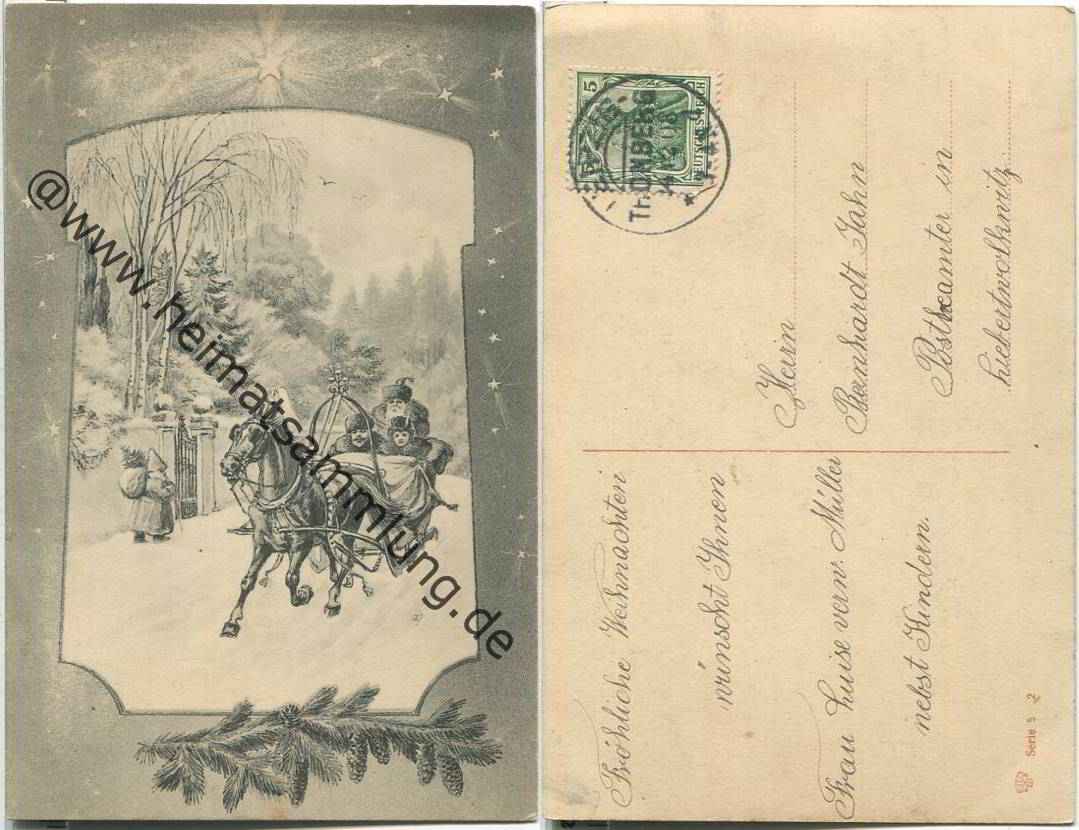 @www.heimatsammlung.de
5
DEUTSCHES REICH
THONBERG
Herrn
Bernhardt Jahn
Postbeamter in
Liebertwolkwitz
Fröhliche Weihnachten
wünscht Ihnen
Frau Luise verw. Müller
nebst Kindern.
Serie 5 2